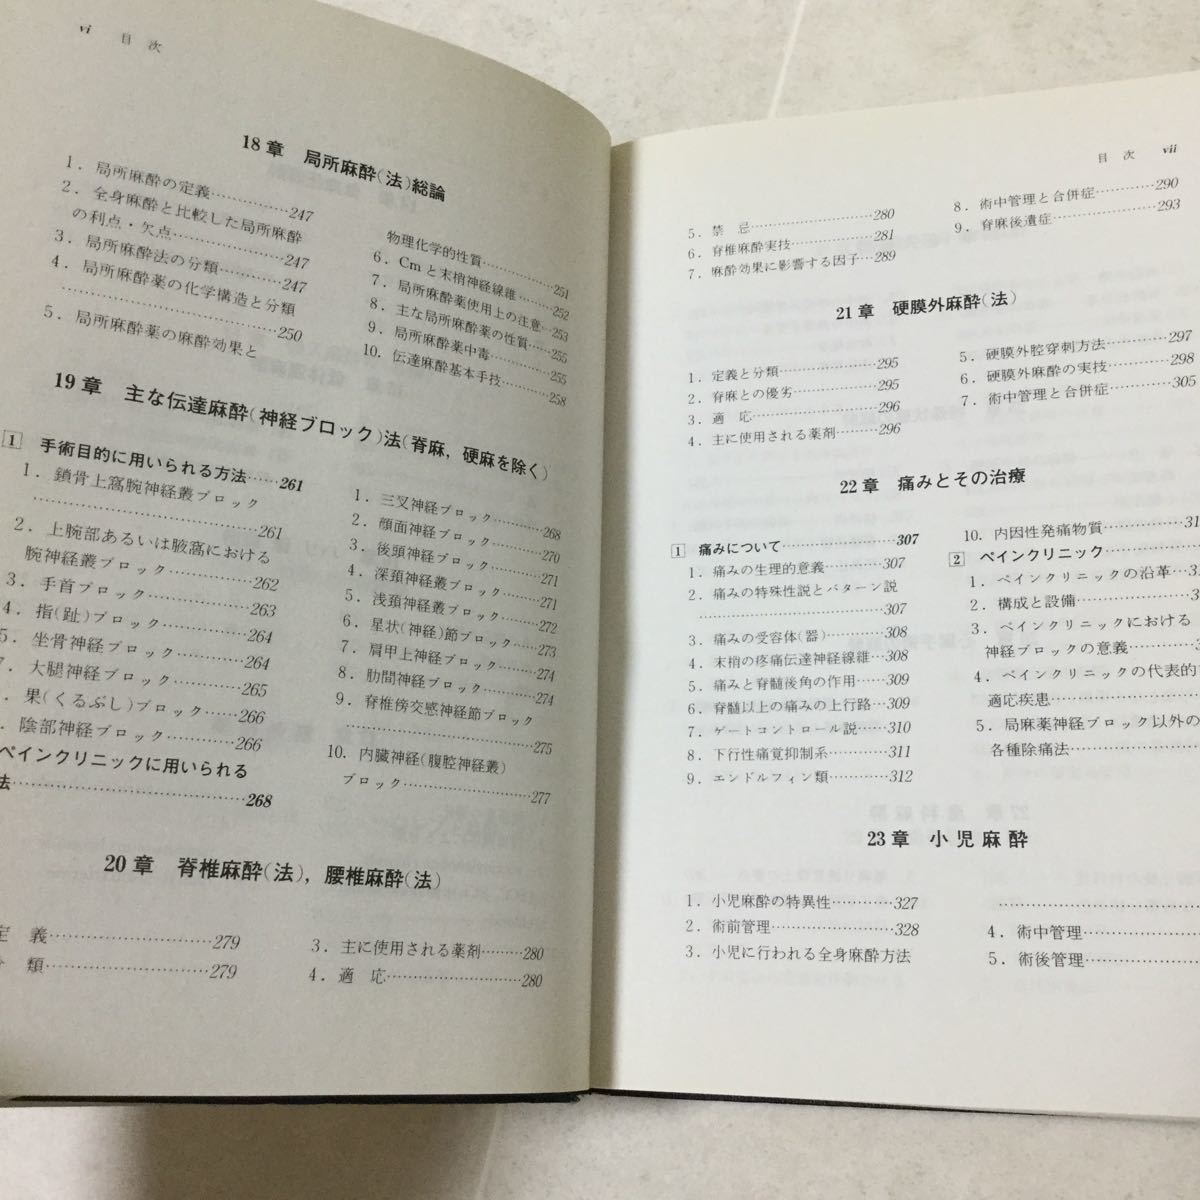 vi 目次
18章 局所麻酔(法)総論
1．局所麻酔の定義…………247
2．全身麻酔と比較した局所麻酔
の利点・欠点……………247
3．局所麻酔法の分類………247
4．局所麻酔薬の化学構造と分類
……………………………250
5．局所麻酔薬の麻酔効果と
物理化学的性質…………251
6．Cmと末梢神経線維……252
7．局所麻酔薬使用上の注意…253
8．主な局所麻酔薬の性質……255
9．局所麻酔薬中毒…………255
10．伝達麻酔基本手技………258
19章 主な伝達麻酔(神経ブロック)法(脊麻，硬麻を除く)
1 手術目的に用いられる方法……261
1．鎖骨上窩腕神経叢ブロック
……………………………261
2．上腕部あるいは腋窩における
腕神経叢ブロック…………262
3．手首ブロック……………263
4．指(趾)ブロック…………264
5．坐骨神経ブロック………264
7．大腿神経ブロック………265
．果(くるぶし)ブロック……266
．陰部神経ブロック………266
ペインクリニックに用いられる
法……………………………268
1．三叉神経ブロック………268
2．顔面神経ブロック………270
3．後頭神経ブロック………271
4．深頚神経叢ブロック……271
5．浅頚神経叢ブロック……272
6．星状(神経)節ブロック……273
7．肩甲上神経ブロック……274
8．肋間神経ブロック………274
9．脊椎傍交感神経節ブロック
……………………………275
10．内臓神経(腹腔神経叢)
ブロック…………………277
20章 脊椎麻酔(法)，腰椎麻酔(法)
定義…………………………279
分類…………………………279
3．主に使用される薬剤………280
4．適応………………………280
目次 vii
5．禁忌………………………280
6．脊椎麻酔実技……………281
7．麻酔効果に影響する因子…289
8．術中管理と合併症…………290
9．脊麻後遺症………………293
21章 硬膜外麻酔(法)
1．定義と分類………………295
2．脊麻との優劣……………295
3．適応………………………296
4．主に使用される薬剤……296
5．硬膜外腔穿刺方法………297
6．硬膜外麻酔の実技………298
7．術中管理と合併症………305
22章 痛みとその治療
1 痛みについて……………307
1．痛みの生理的意義………307
2．痛みの特殊性説とパターン説
……………………………307
3．痛みの受容体(器)………308
4．末梢の疼痛伝達神経線維…308
5．痛みと脊髄後角の作用……309
6．脊髄以上の痛みの上行路…309
7．ゲートコントロール説……310
8．下行性痛覚抑制系………311
9．エンドルフィン類…………312
10．内因性発痛物質…………31
2 ペインクリニック…………
1．ペインクリニックの沿革…3
2．構成と設備………………3
3．ペインクリニックにおける
神経ブロックの意義………3
4．ペインクリニックの代表的
適応疾患……………………
5．局麻薬神経ブロック以外の
各種除痛法…………………
23章 小児麻酔
1．小児麻酔の特異性…………327
2．術前管理…………………328
3．小児に行われる全身麻酔方法
……………………………
4．術中管理…………………
5．術後管理…………………